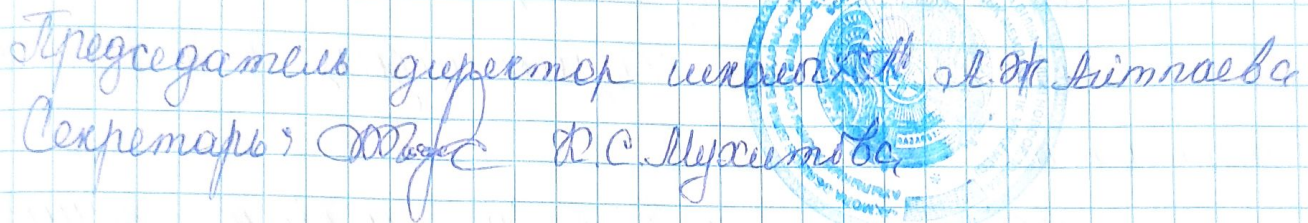 Председатель директор школы А.Ж. Айтпаева
Секретарь: К.С. Мухитова